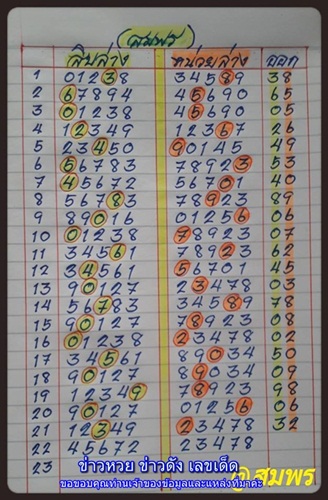 (สมพร)
สิบล่าง หน่วยล่าง ออก
1 01238 34589 38
2 67894 45690 65
3 01238 45690 05
4 12349 12367 26
5 23450 90145 49
6 56783 78923 53
7 45672 56701 40
8 56783 78923 89
9 89016 01256 06
10 01238 78923 07
11 34561 78923 62
12 34561 56701 45
13 90127 23478 03
14 56783 34589 78
15 90127 78923 08
16 01238 23478 02
17 34561 89034 50
18 90127 89034 09
19 12349 78923 98
20 90127 01256 06
21 12349 23478 32
22 45672 23478
23
ข่าวหวย ข่าวดัง เลขเด็ด
ขอขอบคุณท่านเจ้าของข้อมูลและแหล่งที่มาค่ะ
@สมพร